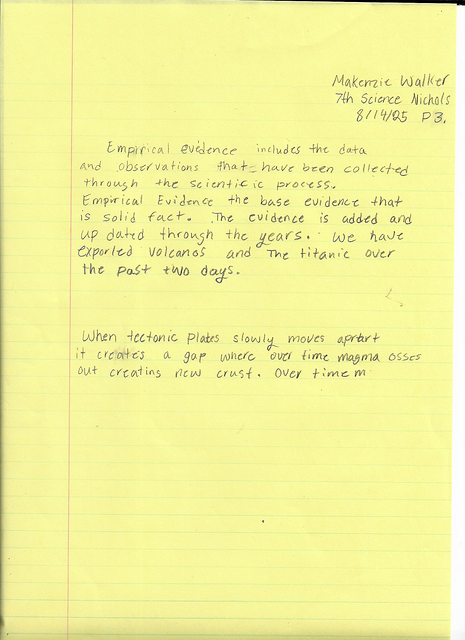 Makenzie Walker
7th Science Nichols
8/14/25 P3.
Empirical evidence includes the data
and observations that have been collected
through the scientific process.
Empirical Evidence the base evidence that
is solid fact. The evidence is added and
up dated through the years. We have
exporled volcanos and The titanic over
the past two days.
When tectonic plates slowly moves aprtart
it creates a gap where over time magma osses
out creating new crust. Over time m